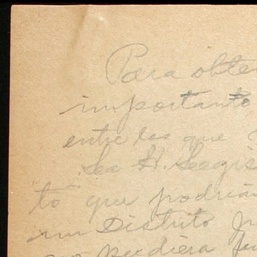 Para obte
importante
entre los que
Sea H. Legis
to que podría
un Distrito J
se pudiera